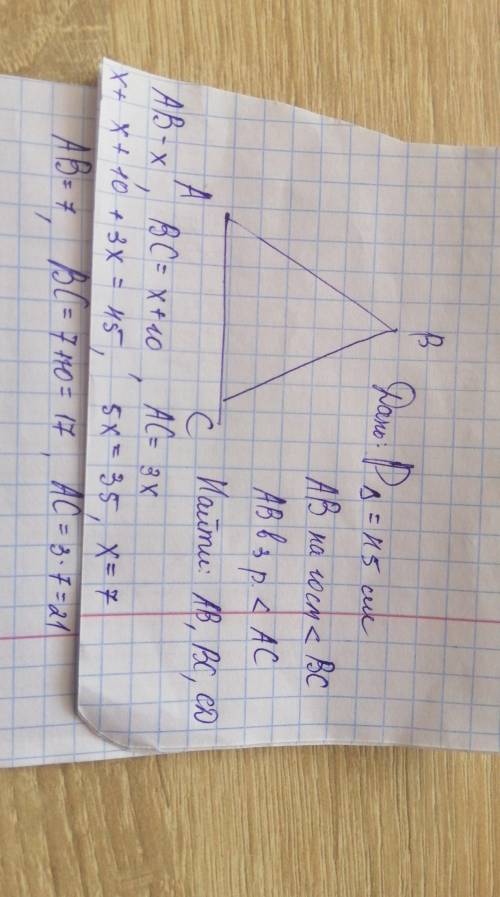 B
Дано: P Δ = 45 см
AB на 10 см < BC
AB в 3 р. < AC
A
C
Найти: AB, BC, CD
AB - x, BC = x+10, AC = 3x
x + x + 10 + 3x = 45, 5x = 35, x = 7
AB = 7, BC = 7+10 = 17, AC = 3·7 = 21